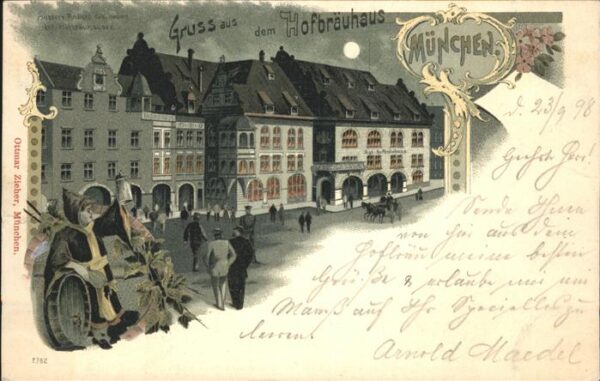 Gruss aus dem Hofbräuhaus
MÜNCHEN.
d. 23/9 98
Geehrt. Herr!
Sende Ihnen
von hier aus dem
Hofbräu meine besten
Grüße & erlaube mir um
Maß auf Ihr Specielles zu
leeren.
Arnold Maedel
Ottmar Zieher, München.